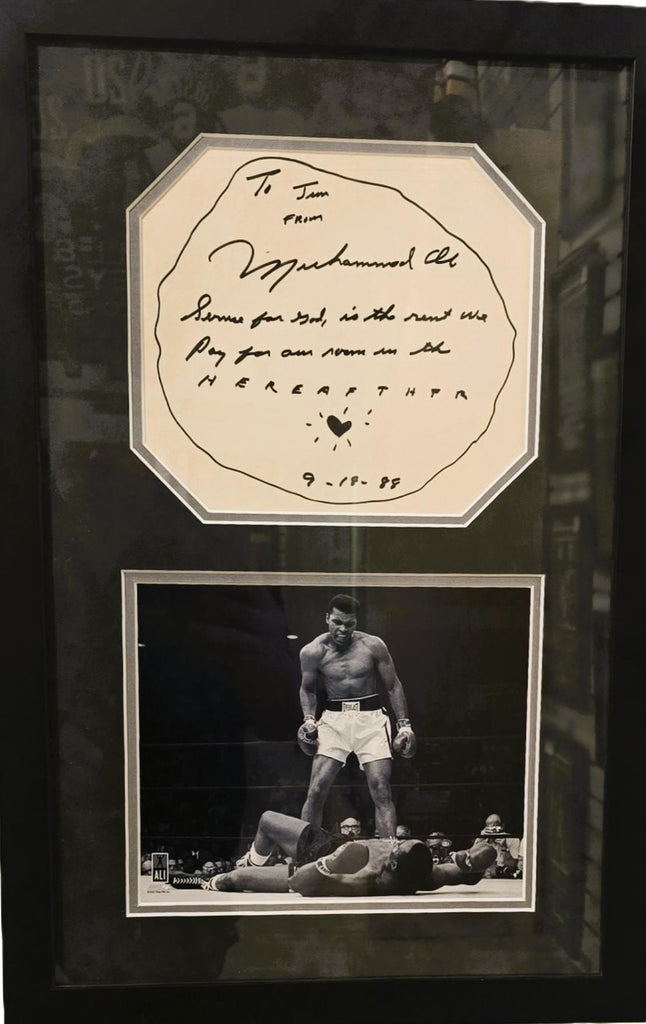 To Jim
FROM
Muhammad Ali
Service for God, is the rent we
Pay for our room in the
HEREAFTHTR
9-18-88
EVERLAST
ALI